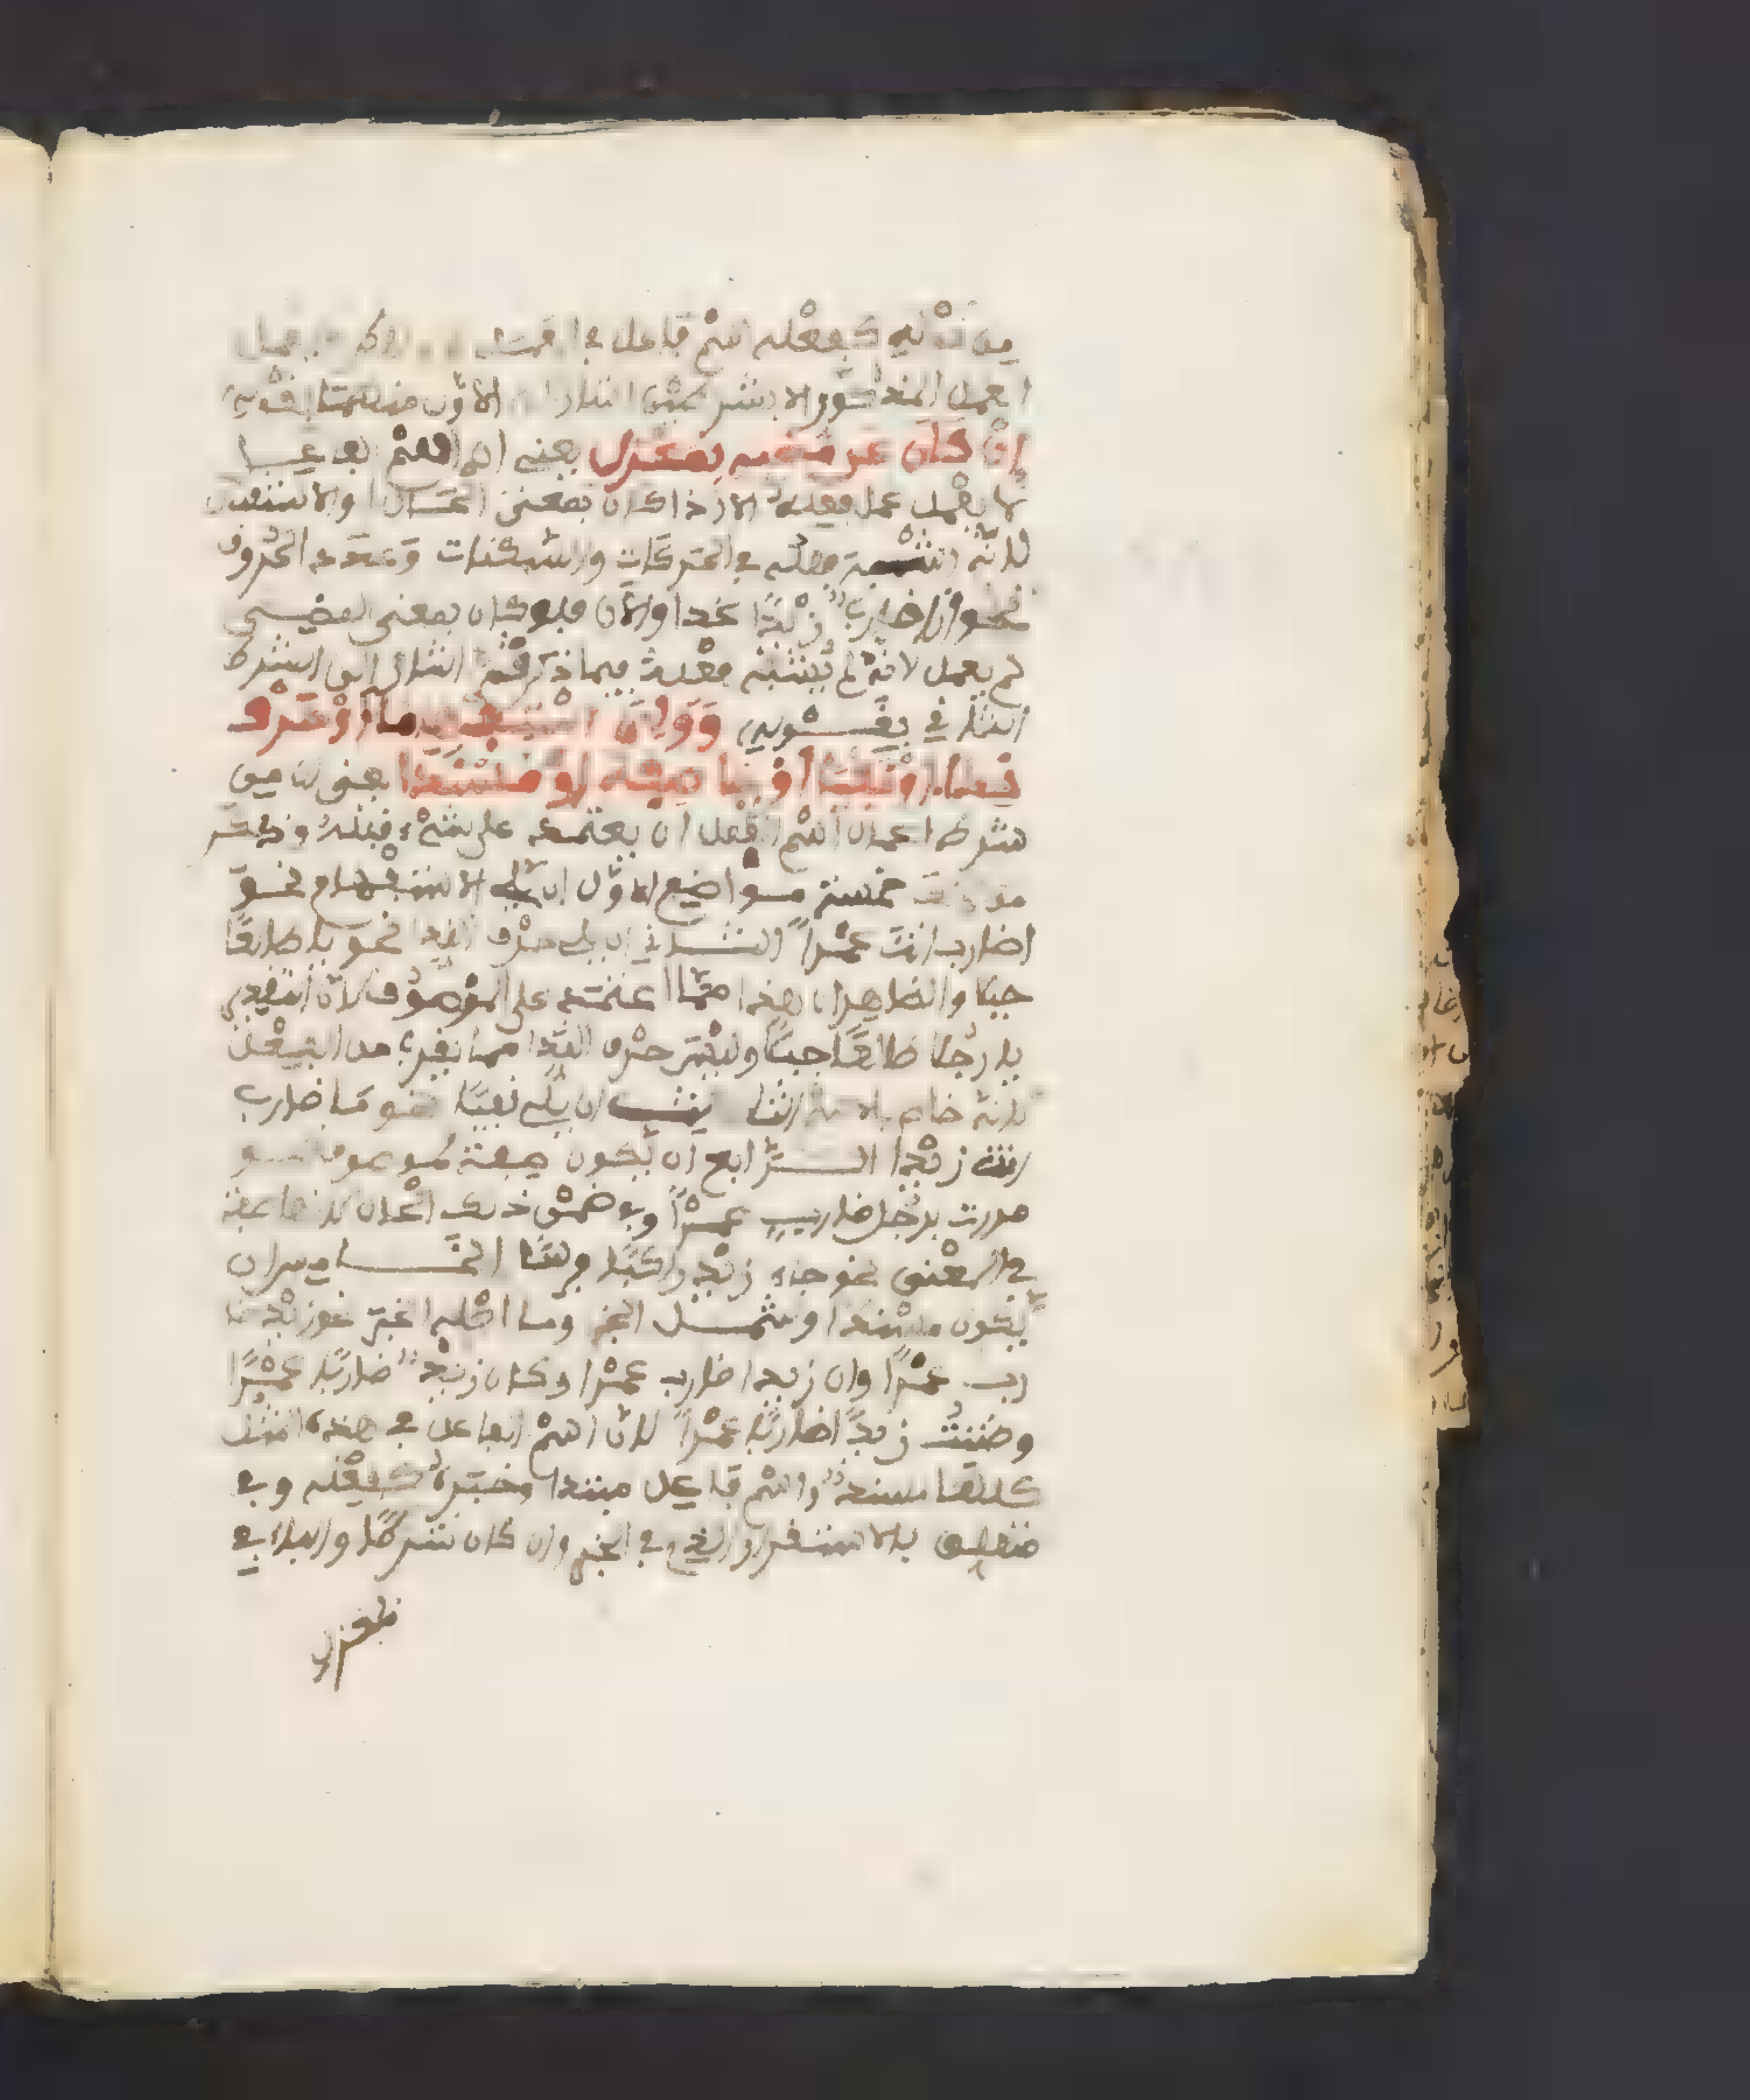 كفعله اسم فاعل في العمل
العمل المذكور الا بشرطين اشار الى الاول منهما بقوله
إن كان عن مضيه بمعزل يعني ان اسم الفاعل
لا يعمل عمل فعله الا اذا كان بمعنى الحال او الاستقبال
لانه اشبه فعله في الحركات والسكنات وعدد الحروف
نحو انا ضارب زيدًا غدا او الآن فلو كان بمعنى المضي
لم يعمل لانه لم يشبه فعله فيما ذكر ثم اشار الى الشرط
الثاني بقوله وولي استفهاما او حرف
ندا او نفيا او جا صفة او مسندا يعني ان من
شرط اعمال اسم الفاعل ان يعتمد على شيء قبله وذكر
من ذلك خمسة مواضع الاول ان يلي الاستفهام نحو
اضارب انت عمرًا الثاني ان يلي حرف النداء نحو يا طالعًا
جبلا والظاهر ان هذا مما اعتمد على الموصوف لان التقدير
يا رجلا طالعًا جبلًا وليس حرف النداء مما يقرب من الفعل
لانه خاص بالاسماء الثالث ان يلي نفيًا نحو ما ضارب
انت زيدا الرابع ان يكون صفة لموصوف نحو
مررت برجل ضارب عمرًا وفي ضمن ذلك الحال لانها صفة
في المعنى نحو جاء زيد راكبًا فرسًا الخامس ان
يكون مسندا وشمل الخبر وما اصله الخبر نحو زيد ضا
رب عمرًا وان زيدا ضارب عمرا وكان زيد ضاربًا عمرًا
وظننت زيدًا ضاربًا عمرًا لان اسم الفاعل في هذه المثل
كلها مسند واسم فاعل مبتدا وخبره كفعله وفي
متعلق بالاستقرار الذي في الخبر وان كان شرط والباء في